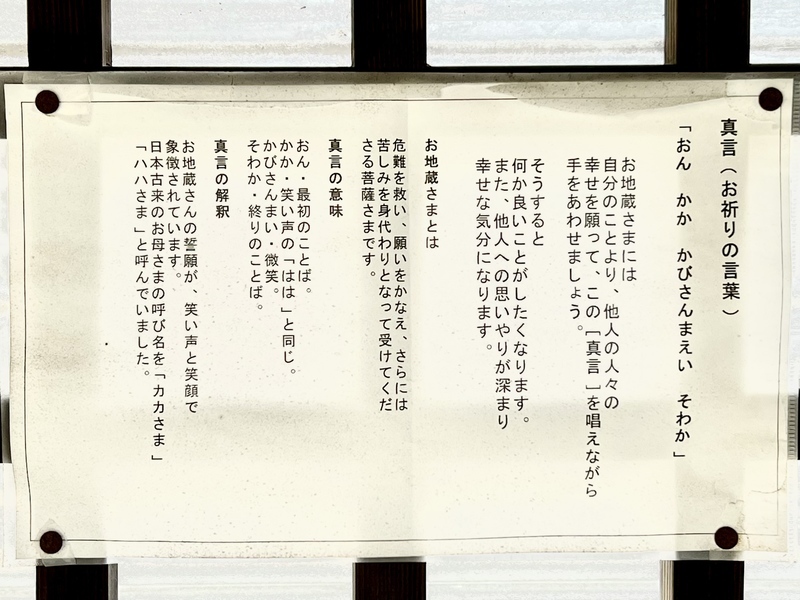 真言（お祈りの言葉）
「おん　かか　かびさんまえい　そわか」
お地蔵さまには
自分のことより、他人の人々の
幸せを願って、この［真言］を唱えながら
手をあわせましょう。
そうすると
何か良いことがしたくなります。
また、他人への思いやりが深まり
幸せな気分になります。
お地蔵さまとは
危難を救い、願いをかなえ、さらには
苦しみを身代わりとなって受けてくだ
さる菩薩さまです。
真言の意味
おん・最初のことば。
かか・笑い声の「はは」と同じ。
かびさんまい・微笑。
そわか・終りのことば。
真言の解釈
お地蔵さんの誓願が、笑い声と笑顔で
象徴されています。
日本古来のお母さまの呼び名を「カカさま」
「ハハさま」と呼んでいました。